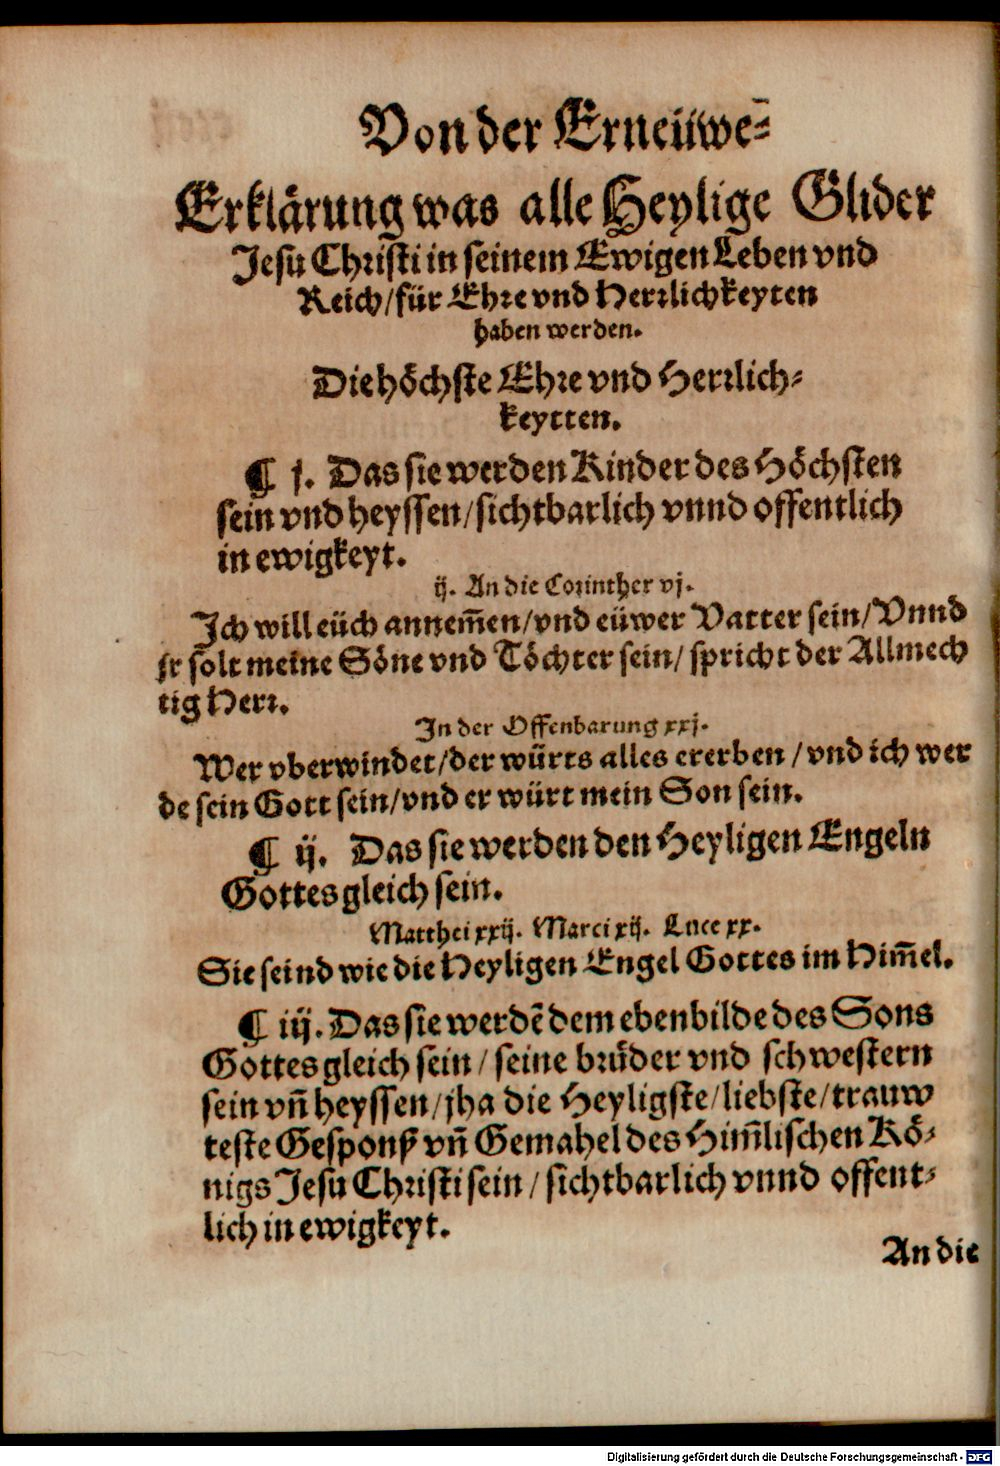 Von der Erneüwe᷒⸗
Erklärung was alle Heylige Glider
Jesu Christi in seinem Ewigen Leben vnd
Reich/für Ehre vnd Herrlichkeyten
haben werden.
Die höchste Ehre vnd Herrlich⸗
keytten.
¶ j. Das sie werden Kinder des Höchsten
sein vnd heyssen/sichtbarlich vnnd offentlich
in ewigkeyt.
ij. An die Corinther vj.
Jch will eüch annem̃en/vnd eüwer Vatter sein/Vnnd
jr solt meine Söne vnd Töchter sein/ spricht der Allmech
tig Herr.
Jn der Offenbarung xxj.
Wer vberwindet/der würts alles ererben/vnd ich wer
de sein Gott sein/vnd er würt mein Son sein.
¶ ij. Das sie werden den Heyligen Engeln
Gottes gleich sein.
Matthei xxij. Marci xij. Luce xx.
Sie seind wie die Heyligen Engel Gottes im Him̃el.
¶ iij. Das sie werdẽ dem ebenbilde des Sons
Gottes gleich sein/seine brüder vnd schwestern
sein vñ heyssen/jha die Heyligste/liebste/trauw
teste Gesponß vñ Gemahel des Him̃lischen Kö⸗
nigs Jesu Christi sein/sichtbarlich vnnd offent⸗
lich in ewigkeyt.
An die
Digitalisierung gefördert durch die Deutsche Forschungsgemeinschaft - DFG